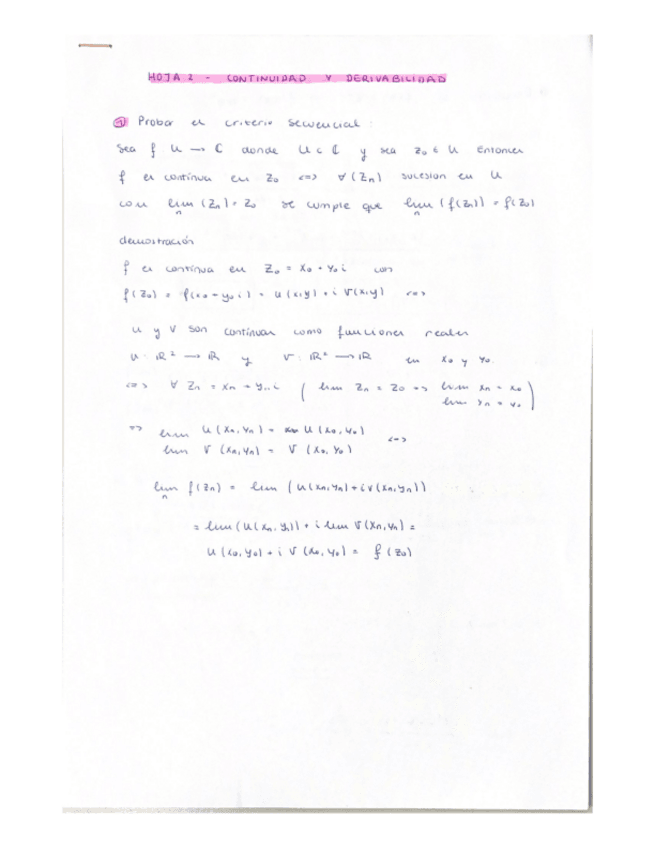 HOJA 2 - CONTINUIDAD Y DERIVABILIDAD
① Probar el criterio secuencial:
Sea f U → ℂ donde U ⊂ ℂ y sea z₀ ∈ U entonces
f es continua en z₀ <=> ∀ (zₙ) sucesion en U
con lim (zₙ) = z₀ se cumple que lim (f(zₙ)) = f(z₀)
n n
demostración
f es continua en z₀ = x₀ + y₀i con
f(z₀) = f(x₀ + y₀i) = u(x,y) + i v(x,y) <=>
u y v son continuas como funciones reales
u: ℝ² → ℝ y v: ℝ² → ℝ en x₀ y y₀.
<=> ∀ zₙ = xₙ + yₙi ( lim zₙ = z₀ => lim xₙ = x₀
lim yₙ = y₀ )
=> lim u(xₙ,yₙ) = u(x₀,y₀)
lim v(xₙ,yₙ) = v(x₀,y₀) <=>
lim f(zₙ) = lim (u(xₙ,yₙ) + i v(xₙ,yₙ))
n
= lim (u(xₙ,yₙ)) + i lim v(xₙ,yₙ) =
u(x₀,y₀) + i v(x₀,y₀) = f(z₀)